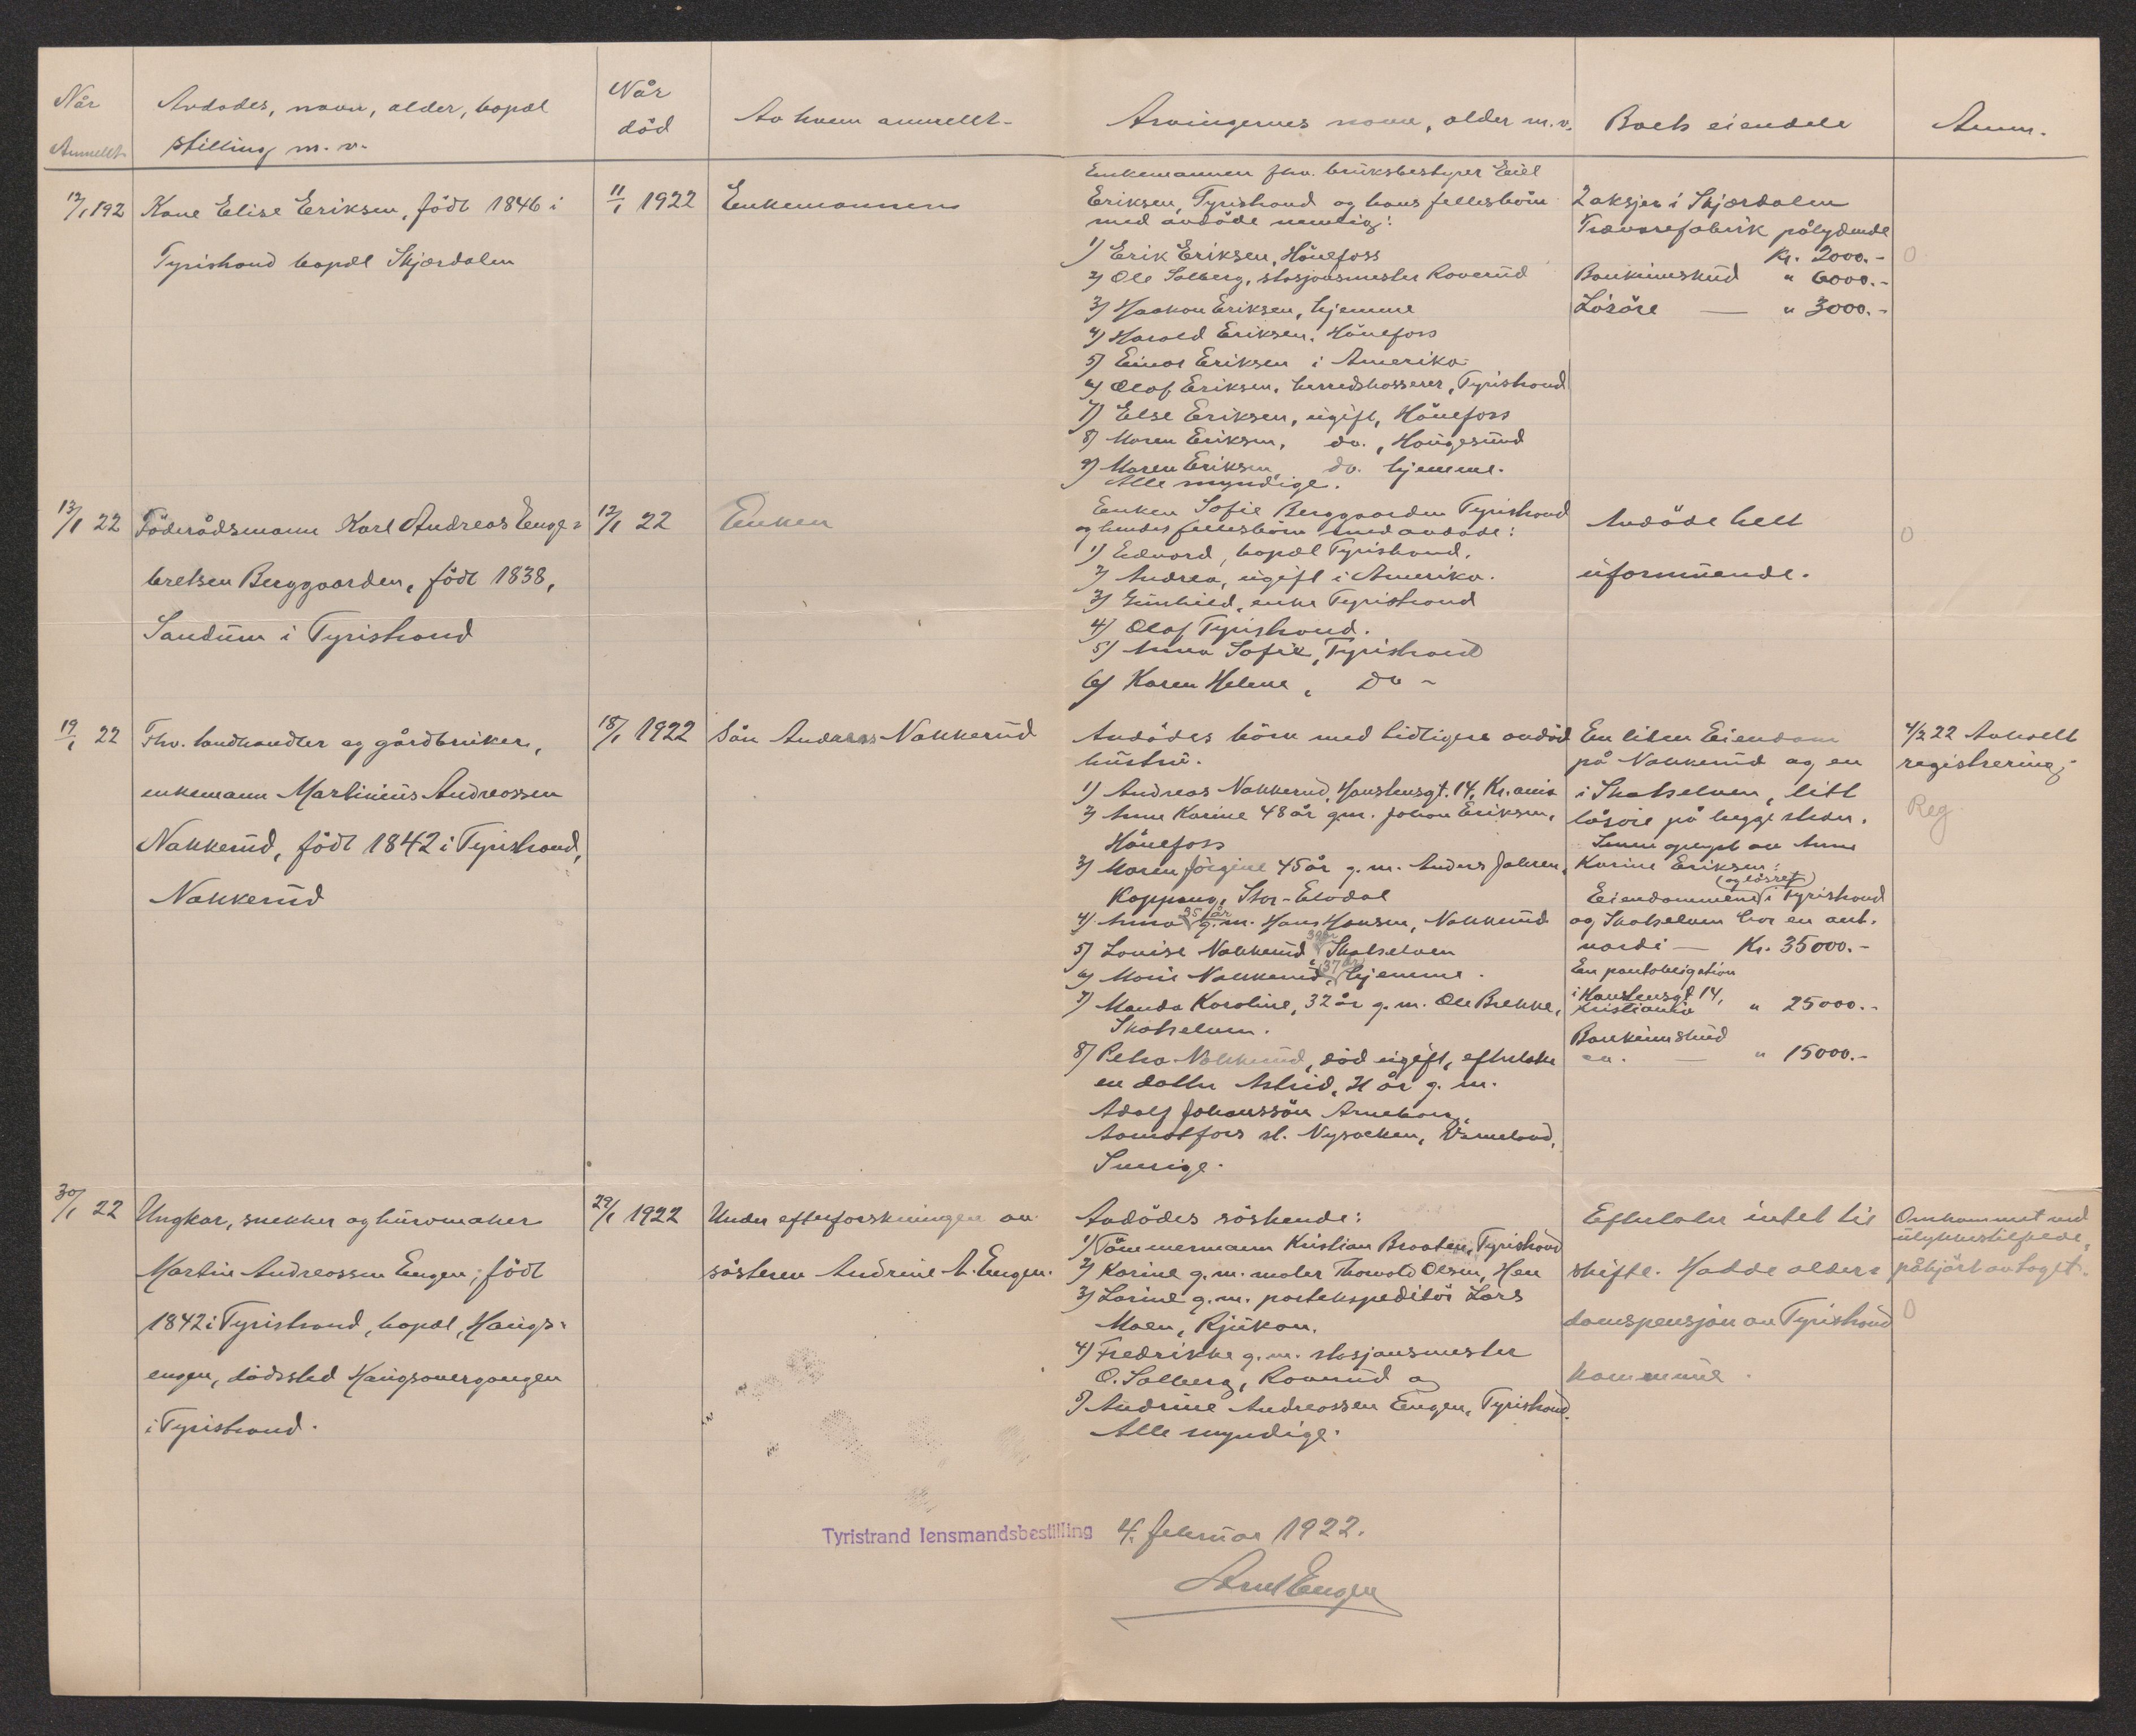 Når
Anmeldt
Avdødes, navn, alder, bopæl
stilling m. v.
Når
død
Av hvem anmeldt
Arvingernes navn, alder m. v.
Boets eiendele
Anm.
12/1 192
Kone Elise Eriksen, født 1846 i
Tyristrand bopæl Skjærdalen
11/1 1922
Enkemannen
Enkemannen fhv. bruksbestyrer
Eriksen, Tyristrand og hans fellesbörn
med avdöde nemlig:
1) Erik Eriksen, Hönefoss
2) Ole Solberg, stasjonsmester Roverud
3) Haakon Eriksen, hjemme
4) Harald Eriksen, Hönefoss
5) Einar Eriksen i Amerika
6) Olaf Eriksen, herredskasserer, Tyristrand
7) Else Eriksen, ugift, Hönefoss
8) Maren Eriksen, do., Haugesund
9) Maren Eriksen, do. hjemme.
Alle myndige.
2 aksjer i Skjærdalen
Trævarefabrik pålydende
Kr. 2000.-
Bankinnskud " 6000.-
Lösöre — " 3000.-
0
13/1 22
Föderådsmann Karl Andreas Enge-
bretsen Berggaarden, födt 1838,
Sandum i Tyristrand
12/1 22
Enken
Enken Sofie Berggaarden Tyristrand
og hendes fellesbörn med avdöde:
1) Edvard, bopæl Tyristrand.
2) Andrea, ugift i Amerika.
3) Gunhild, enke Tyristrand
4) Olaf Tyristrand.
5) Anna Sofie, Tyristrand
6) Karen Helene, do -
Avdöde helt
uformuende.
0
19/1 22
Fhv. landhandler og gårdbruker,
enkemann Martinius Andreassen
Nakkerud, födt 1842 i Tyristrand,
Nakkerud
18/1 1922
Sön Andreas Nakkerud
Avdödes börn med tidligere avdöd
hustru.
1) Andreas Nakkerud, Hauslensgt. 14, Kr.ania
2) Anne Karine 48 år g.m. Johan Eriksen,
Hönefoss
3) Maren Jörgine 45 år g. m. Anders Jahren,
Koppang, Stor-Elvdal
4) Anna 35 år g.m. Hans Hansen, Nakkerud
5) Louise Nakkerud Skotselven
6) Marie Nakkerud, (37 år) hjemme.
7) Manda Karoline, 32 år g. m. Ole Brekke,
Skotselven.
8) Petra Nakkerud, död ugift, efterlatt
en datter Astrid, 21 år g. m.
Adolf Johanssön
Aamotfors st. Nysocken, Värmland,
Sverige.
En liten Eiendom
på Nakkerud og en
i Skotselven, litt
lösöre på begge steder.
Senere oplyst av Anne
Karine Eriksen:
(og lösöret)
Eiendommene i Tyristrand
og Skotselven har en ant.
verdi — Kr. 35000.-
En pantobligation
i Hauslensgt 14,
Kristiania " 25000.-
Bankinnskud
ca. — " 15000.-
4/2 22 Avholdt
registrering.
Reg
30/1 22
Ungkar, snekker og hurvmaker
Martin Andreassen Engen, födt
1842 i Tyristrand, bopæl, Haugs-
engen, dödssted Haugsovergangen
i Tyristrand.
29/1 1922
Under efterforskningen av
sösteren Andrine A. Engen.
Avdödes söskende:
1) Tömmermann Kristian Braaten, Tyristrand
2) Karine g. m. maler Thorvald Olsen, Hen
3) Lorine g. m. postekspeditör Lars
Moen, Rjukan.
4) Fredrikke g. m. stasjonsmester
O. Solberg, Roverud og
5) Andrine Andreassen Engen, Tyristrand.
Alle myndige.
Efterlater intet til
skifte. Hadde alder-
domspensjon av Tyristrand
kommune.
Omkommet ved
ulykkestilfelde,
påkjört av toget.
0
Tyristrand lensmandsbestilling 4. februar 1922.
Engen